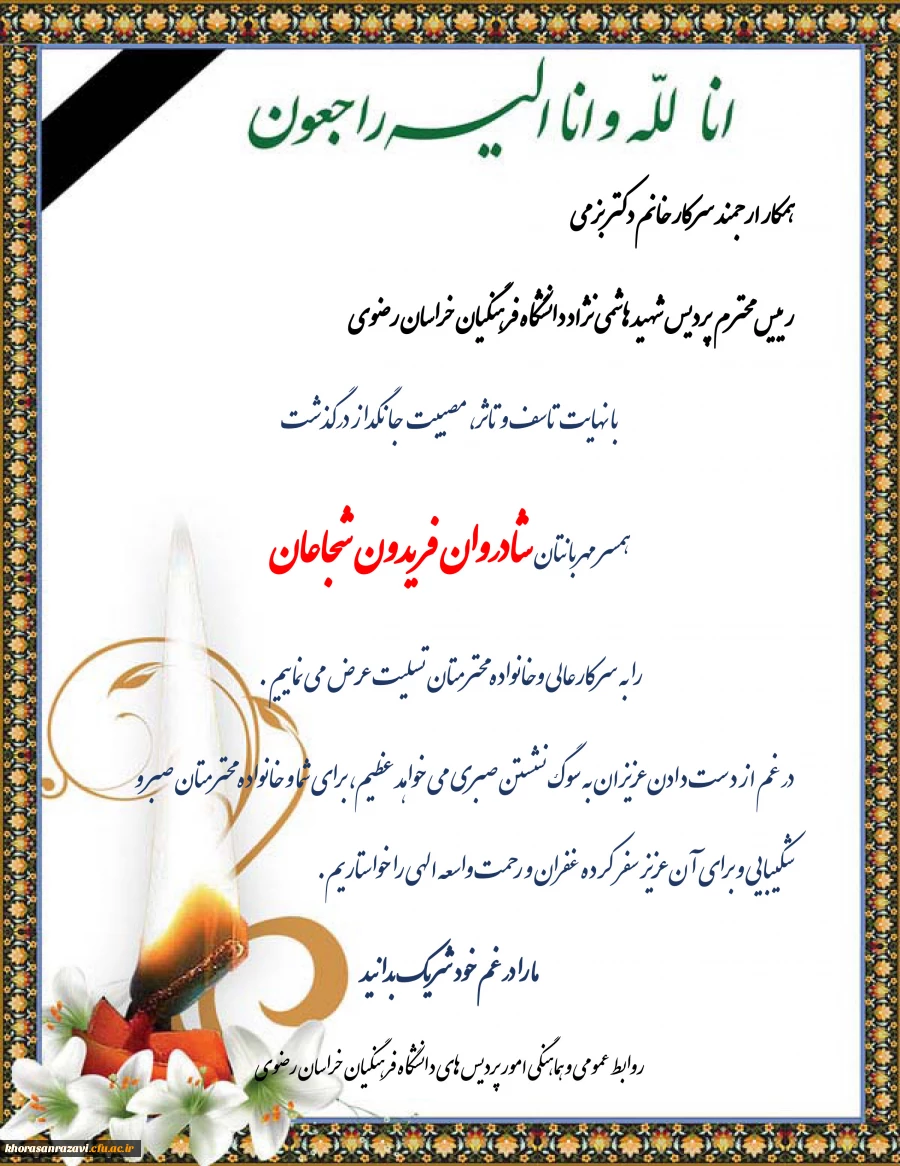 انا لله و انا الیه راجعون
همکار ارجمند سرکار خانم دکتر بزمی
رییس محترم پردیس شهید هاشمی نژاد دانشگاه فرهنگیان خراسان رضوی
با نهایت تاسف و تاثر، مصیبت جانگداز درگذشت
همسر مهربانتان شادروان فریدون شجاعان
را به سرکار عالی و خانواده محترمتان تسلیت عرض می نماییم .
در غم از دست دادن عزیزان به سوگ نشستن صبری می خواهد عظیم، برای شما و خانواده محترمتان صبر و
شکیبایی و برای آن عزیز سفر کرده غفران و رحمت واسعه الهی را خواستاریم .
ما را در غم خود شریک بدانید
روابط عمومی و هماهنگی امور پردیس های دانشگاه فرهنگیان خراسان رضوی
khorasanrazavi.cfu.ac.ir